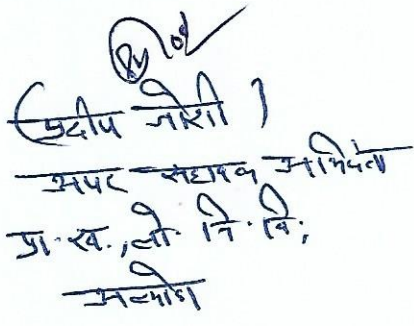 (प्रदीप जोशी)
अपर सहायक अभियंता
प्रा. ख., लो. नि. वि.,
अल्मोड़ा